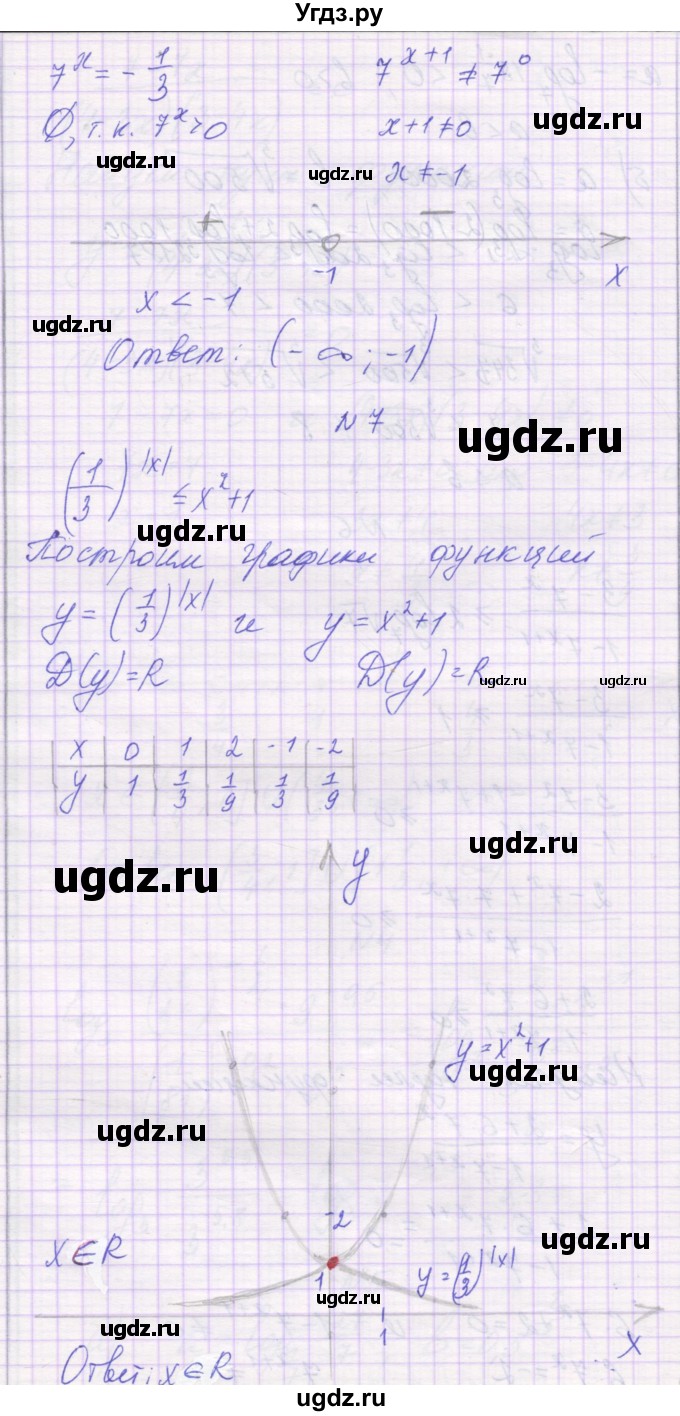 Угдз.ру
7^x = -1/3
7^{x+1} ≠ 7^0
Ø, т.к. 7^x > 0
x+1 ≠ 0
ugdz.ru
ugdz.ru
ugdz.ru
x ≠ -1
+ −
-1
x
x < -1
ugdz.ru
Ответ: (-∞; -1)
N 7
ugdz.ru
(1/3)^{|x|} ≤ x^2+1
ugdz.ru
Построим графики функций
y = (1/3)^{|x|} и y = x^2+1
D(y)=R D(y)=R
ugdz.ru
ugdz.ru
x 0 1 2 -1 -2
y 1 1/3 1/9 1/3 1/9
ugdz.ru
ugdz.ru
y
y = x^2+1
ugdz.ru
ugdz.ru
2
ugdz.ru
x∈R
1
y = (1/3)^{|x|}
ugdz.ru
ugdz.ru
1
x
Ответ: x∈R
ugdz.ru
ugdz.ru